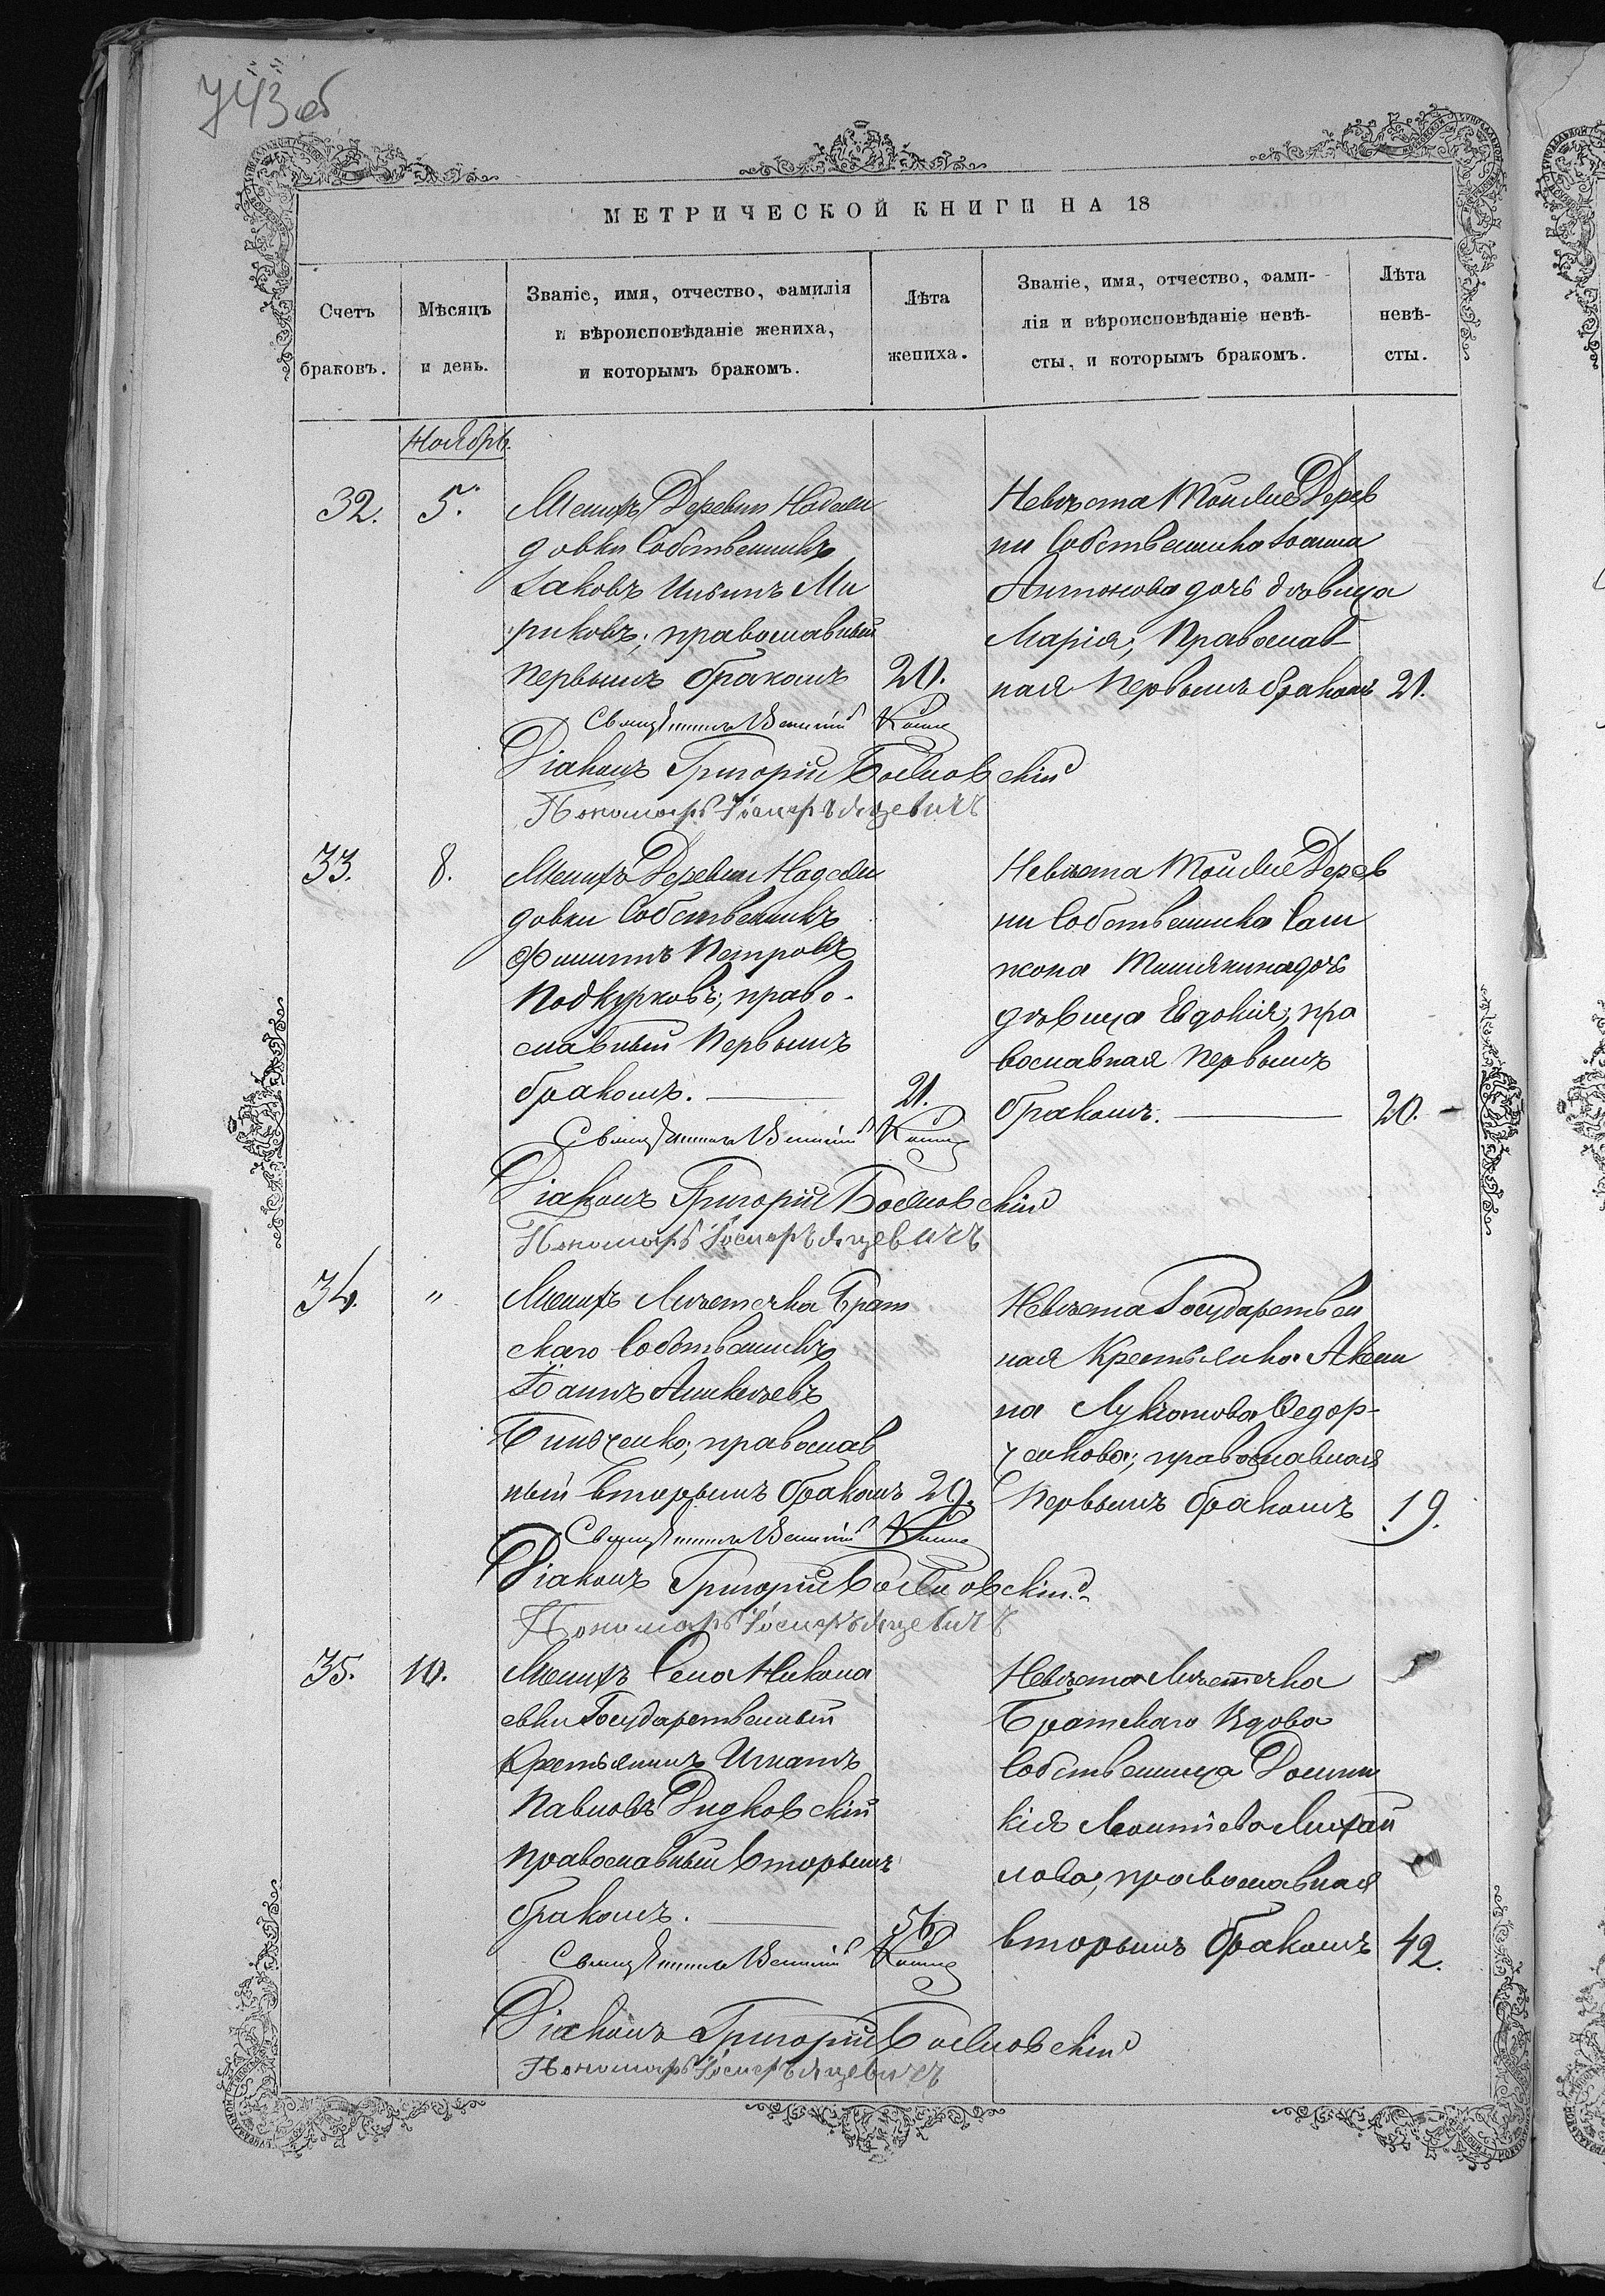 743 об
МЕТРИЧЕСКОЙ КНИГИ НА 18
Счетъ браковъ.
Мѣсяцъ и день.
Званіе, имя, отчество, фамилія
и вѣроисповѣданіе жениха,
и которымъ бракомъ.
Лѣта жениха.
Званіе, имя, отчество, фами-
лія и вѣроисповѣданіе невѣ-
сты, и которымъ бракомъ.
Лѣта невѣ-
сты.
Ноябрь.
32. 5.
Женихъ Деревни
довки Собственникъ
Іаковъ Ильинъ Ми
риковъ; православный
первымъ бракомъ 20.
Невѣста Тойже Дерев
ни Собственника Іоанна
Антонова дочь дѣвица
Марія; Православ-
ная Первымъ бракомъ 21.
Священникъ
Діаконъ Григорій
Пономарь
33. 8.
Женихъ Деревни
довки Собственникъ
Филиппъ Петровъ
Подкурковъ; право-
славный Первымъ
бракомъ. 21.
Невѣста Тойже Дерев
ни Собственника Сам
сона дочь
дѣвица Евдокія; пра
вославная Первымъ
бракомъ. 20.
Священникъ
Діаконъ Григорій
Пономарь
34. "
Женихъ Мѣстечка Брат
скаго Собственникъ
Іоаннъ Алексѣевъ
православ
ный вторымъ бракомъ 29.
Невѣста Государствен
ная Крестьянка Аксен
на Лукіанова Ѳедор-
ченкова; православная
Первымъ бракомъ 19.
Священникъ
Діаконъ Григорій
Пономарь
35. 10.
Женихъ Села Никола
евки Государственный
Крестьянинъ Игнатъ
Павловъ Дидковскій
православный вторымъ
бракомъ. 56
Невѣста Мѣстечка
Братскаго Вдова
Собственница Домни
кія Леонтіева Михай
лова; православная
вторымъ бракомъ 42.
Священникъ
Діаконъ Григорій
Пономарь